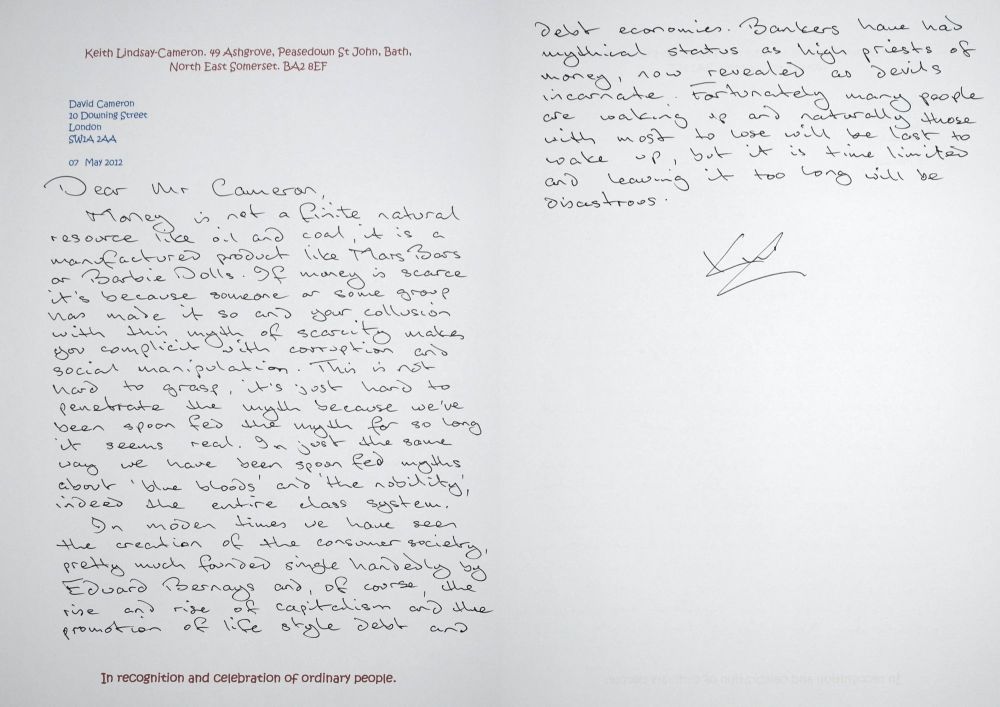 Keith Lindsay-Cameron. 49 Ashgrove, Peasedown St John, Bath,
North East Somerset. BA2 8EF
David Cameron
10 Downing Street
London
SW1A 2AA
07 May 2012
Dear Mr Cameron,
Money is not a finite natural
resource like oil and coal, it is a
manufactured product like Mars Bars
or Barbie Dolls. If money is scarce
it's because someone or some group
has made it so and your collusion
with this myth of scarcity makes
you complicit with corruption and
social manipulation. This is not
hard to grasp, it's just hard to
penetrate the myth because we've
been spoon fed the myth for so long
it seems real. In just the same
way we have been spoon fed myths
about 'blue bloods' and 'the nobility',
indeed the entire class system.
In moden times we have seen
the creation of the consumer society,
pretty much founded single handedly by
Edward Bernays and, of course, the
rise and rise of capitalism and the
promotion of life style debt and
In recognition and celebration of ordinary people.
debt economies. Bankers have had
mythical status as high priests of
money, now revealed as devils
incarnate. Fortunately many people
are waking up and naturally those
with most to lose will be last to
wake up, but it is time limited
and leaving it too long will be
disastrous.